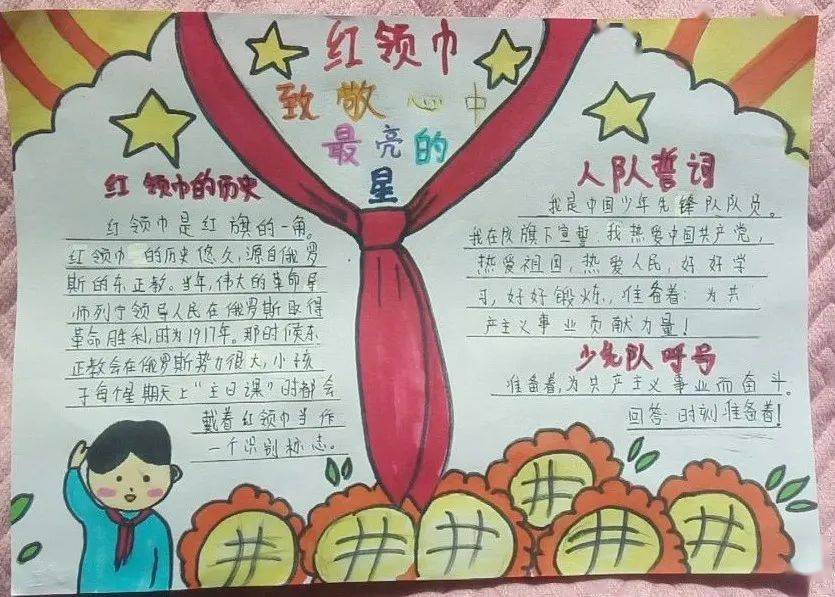 红领巾
致敬心中
最亮的
星
红领巾的历史
红领巾是红旗的一角。
红领巾的历史悠久,源自俄罗
斯的东正教。当年,伟大的革命导
师列宁领导人民在俄罗斯取得
革命胜利,时为1917年。那时候东
正教会在俄罗斯势力很大,小孩
子每个星期天上“主日课”时都会
戴着红领巾当作
一个识别标志。
入队誓词
我是中国少年先锋队队员。
我在队旗下宣誓:我热爱中国共产党,
热爱祖国,热爱人民,好好学
习,好好锻炼,准备着:为共
产主义事业贡献力量!
少先队呼号
准备着,为共产主义事业而奋斗。
回答:时刻准备着!